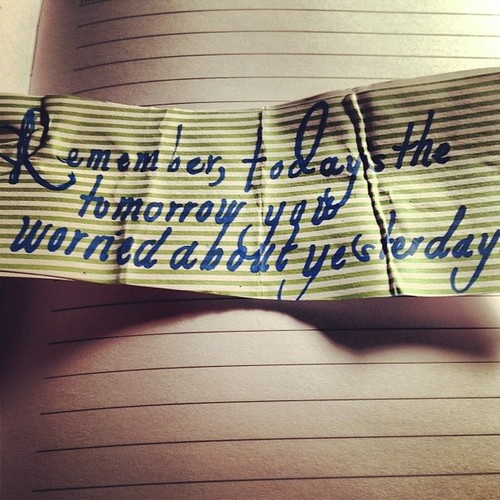 Remember, todays the
tomorrow you
worried about yesterday